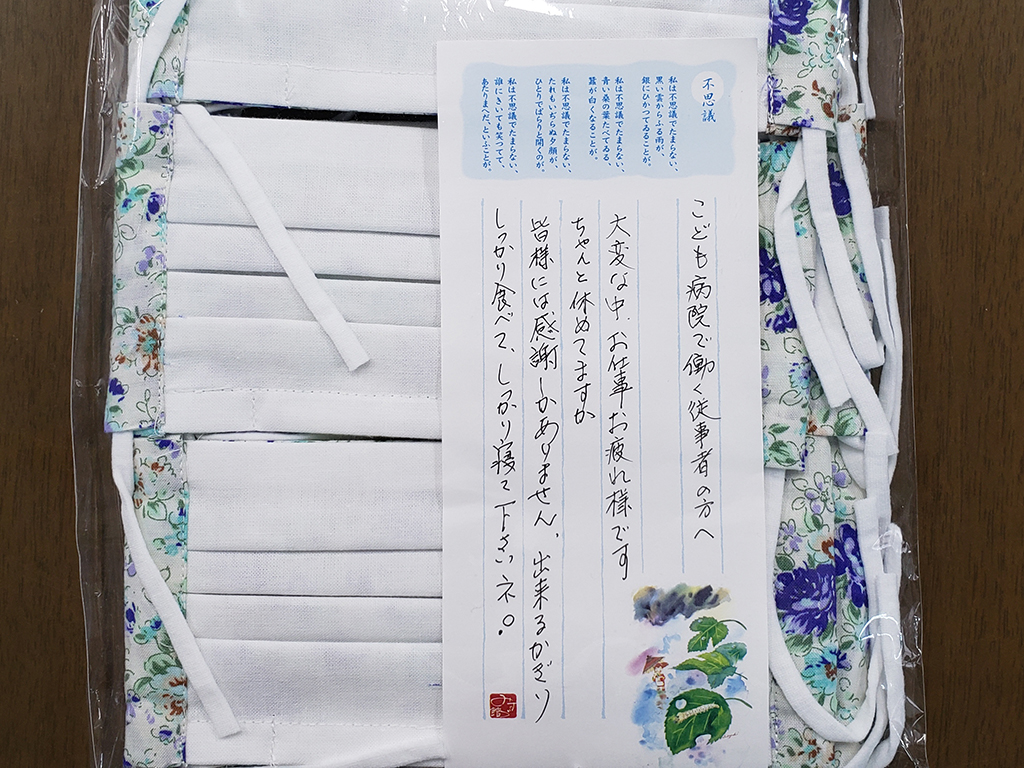 不思議
私は不思議でたまらない、
黒い雲からふる雨が、
銀にひかつてゐることが。
私は不思議でたまらない、
青い桑の葉たべてゐる、
蠶が白くなることが。
私は不思議でたまらない、
たれもいぢらぬ夕顔が、
ひとりでぱらりと開くのが。
私は不思議でたまらない、
誰にきいても笑つてて、
あたりまへだ、といふことが。
こども病院で働く従事者の方へ
大変な中、お仕事お疲れ様です
ちゃんと休めてますか
皆様には感謝しかありません、出来るかぎり
しっかり食べて、しっかり寝て下さいネ。